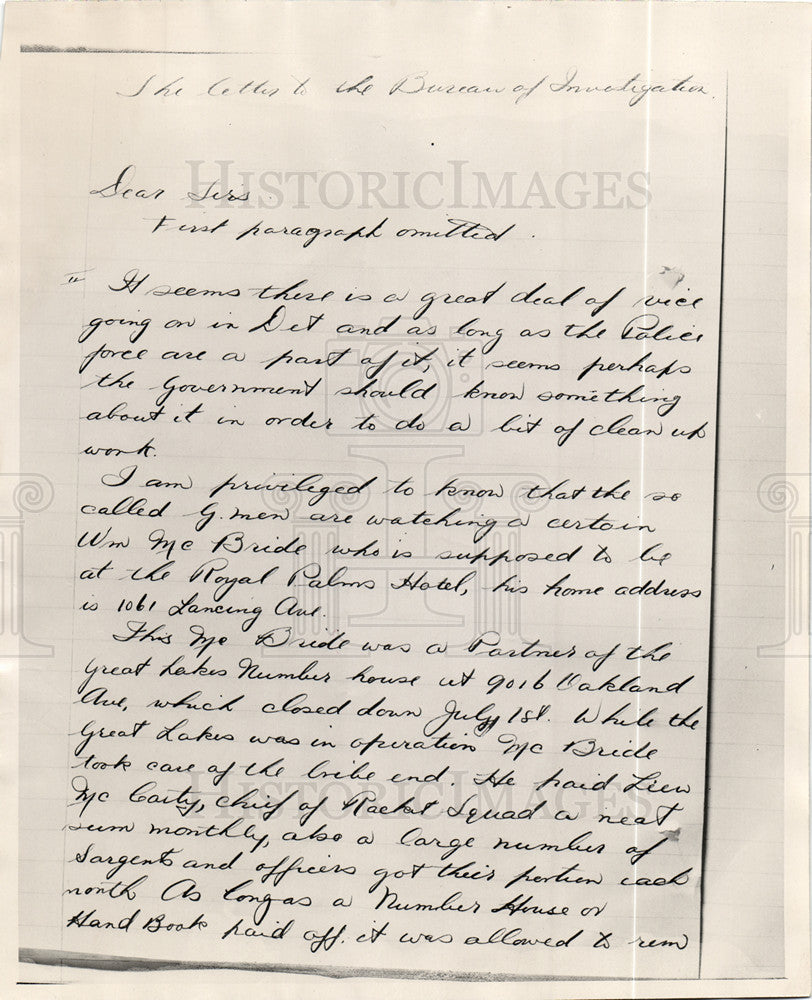 The letter to the Bureau of Investigation.
Dear Sirs.
First paragraph omitted.
" It seems there is a great deal of vice
going on in Det and as long as the Police
force are a part of it, it seems perhaps
the Government should know something
about it in order to do a bit of clean up
work.
I am privileged to know that the so
called G. men are watching a certain
Wm Mc Bride who is supposed to be
at the Royal Palms Hotel, his home address
is 1061 Lancing Ave.
This Mc Bride was a Partner of the
Great Lakes Number house at 9016 Oakland
Ave, which closed down July 1st. While the
Great Lakes was in operation Mc Bride
took care of the bribe end. He paid Lieu
Mc Carty, chief of Racket Squad a neat
sum monthly, also a large number of
Sargents and officers got their portion each
month As long as a Number House or
Hand Book paid off. it was allowed to rem
HISTORICIMAGES
HISTORICIMAGES